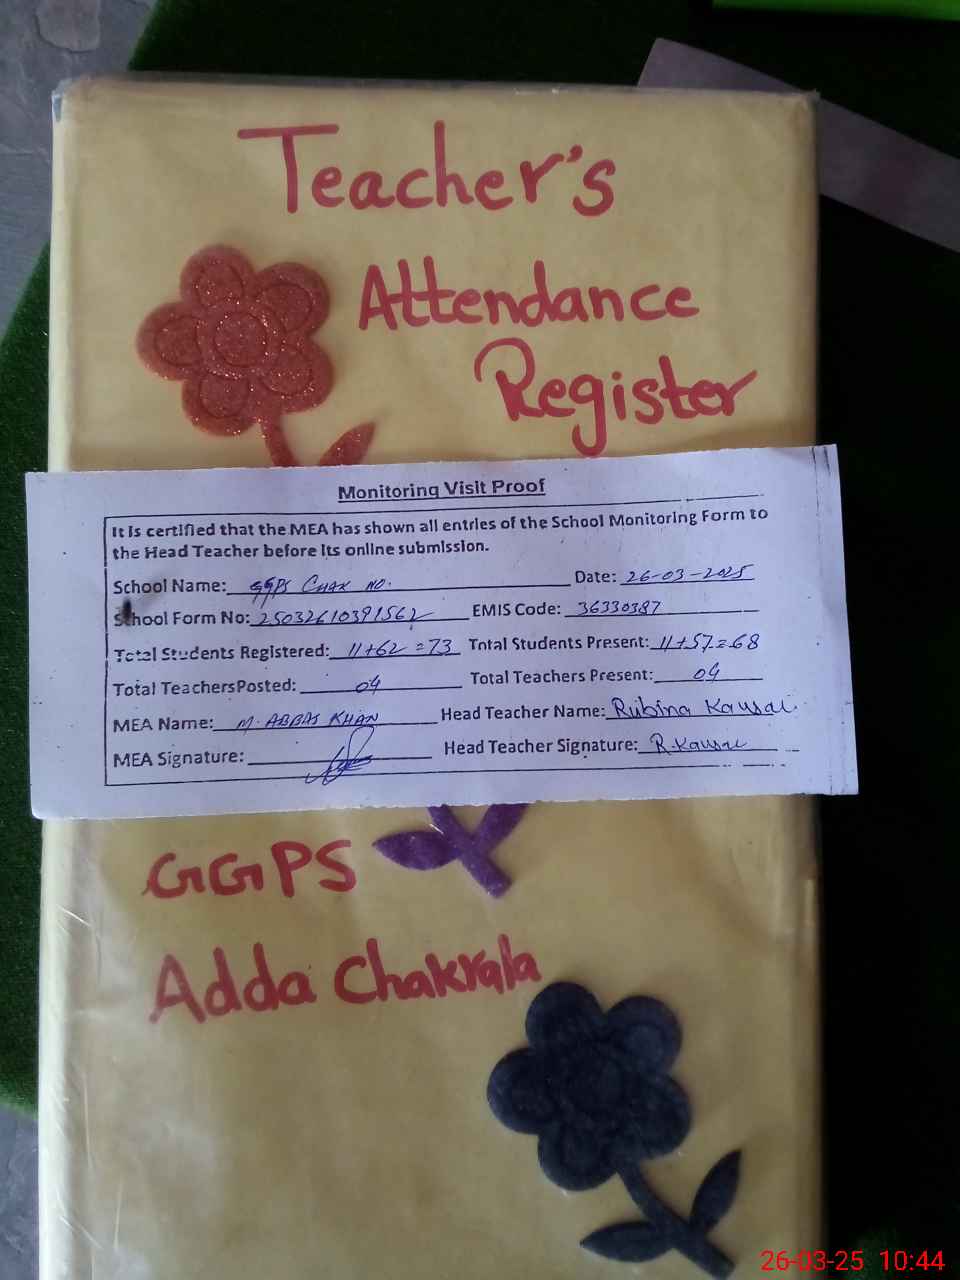 Teacher's
Attendance
Register
Monitoring Visit Proof
It is certified that the MEA has shown all entries of the School Monitoring Form to
the Head Teacher before its online submission.
School Name: GGPS Chak No. Date: 26-03-2025
School Form No: 25032610391562 EMIS Code: 36330387
Total Students Registered: 11+62=73 Total Students Present: 11+57=68
Total TeachersPosted: 04 Total Teachers Present: 04
MEA Name: M. ABBAS KHAN Head Teacher Name: Rubina Kausar.
MEA Signature: Head Teacher Signature: R.Kausar
GGPS
Adda Chakrala
26-03-25 10:44